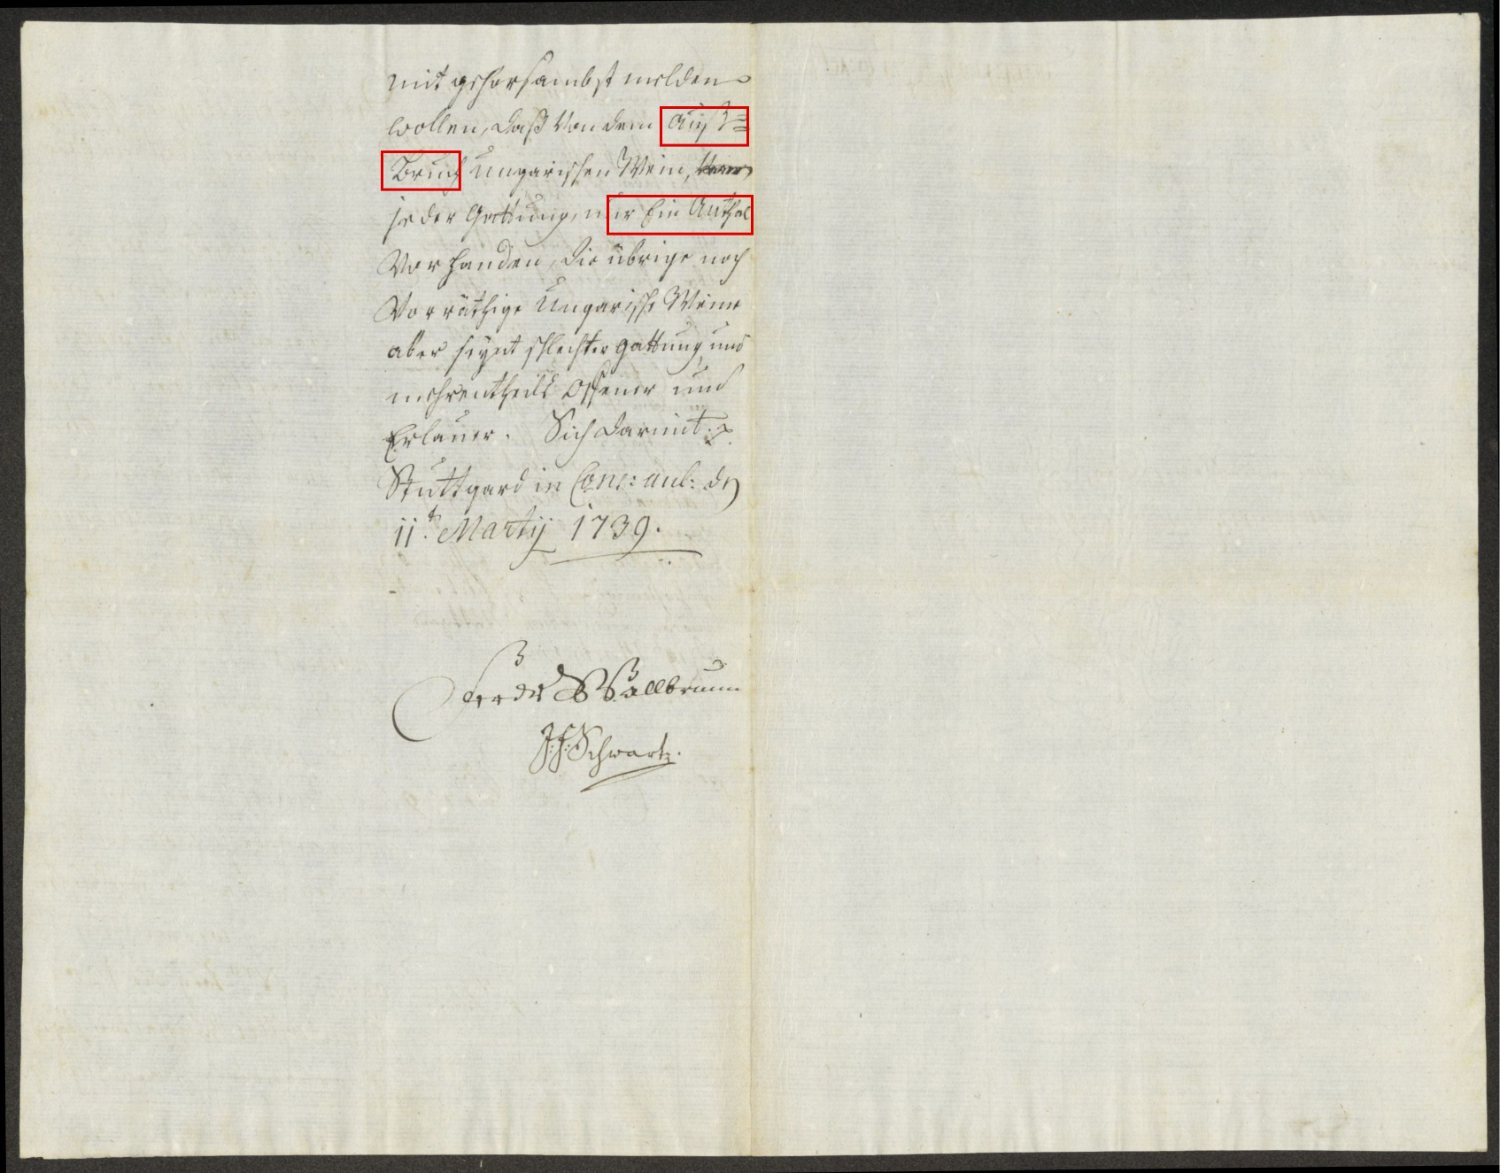 mit gehorsambst melden
wollen, daß von dem Auß=
Bruch Ungarischen Wein,
jeder Gattung, nur Ein Anthal
Vorhanden, die übrige noch
Vorräthige Ungarische Weine
aber seynt schlechter gattung und
mehrentheils Offener und
Erlauer. Sich darmit
Stuttgard in Cons: aul: den
11.t Martij 1739.
Wallbrunn
J. F. Schwartz.